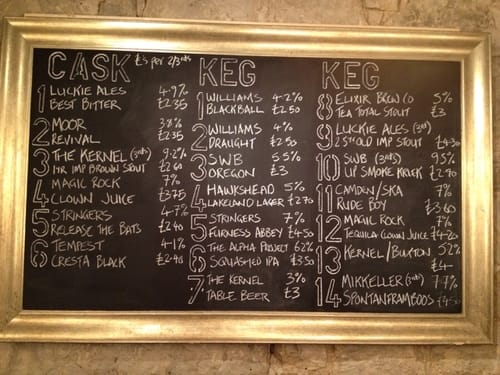 CASK £'s per 2/3rds
1 LUCKIE ALES 4.9%
BEST BITTER £2.35
2 MOOR 3.8%
REVIVAL £2.35
3 THE KERNEL (3rds) 9.2%
IMP BROWN STOUT £2.60
4 MAGIC ROCK 7%
CLOWN JUICE £3.75
5 STRINGERS 4.7%
RELEASE THE BATS £2.40
6 TEMPEST 4.1%
CRESTA BLACK £2.40
KEG
1 WILLIAMS 4.2%
BLACKBALL £2.50
2 WILLIAMS 4%
DRAUGHT £2.50
3 SWB 5.5%
OREGON £3
4 HAWKSHEAD 5%
LAKELAND LAGER £2.70
5 STRINGERS 7%
FURNESS ABBEY £4.50
6 THE ALPHA PROJECT 6.2%
SQUASHED IPA £3.50
7 THE KERNEL 3%
TABLE BEER £3
KEG
8 ELIXIR BREW CO 5%
TEA TOTAL STOUT £3
9 LUCKIE ALES (3rds)
IMP STOUT £4.30
10 SWB (3rds) 9.5%
UP SMOKE KRIEK £2.90
11 CAMDEN/SKA 7%
RUDE BOY £3.60
12 MAGIC ROCK 7%
TEQUILA CLOWN JUICE £4.20
13 KERNEL/BUXTON 5.2%
£4-
14 MIKKELLER (3rds) 7.7%
SPONTANFRAMBOOS